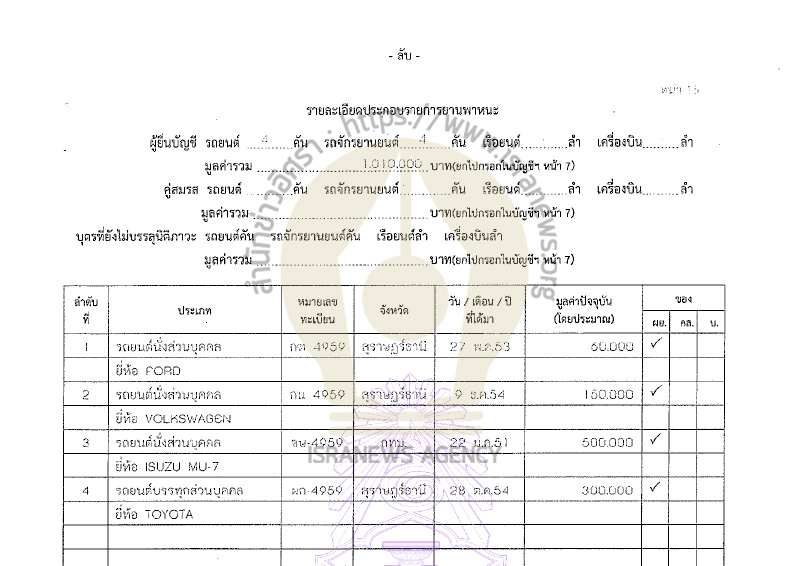 - ลับ -
หน้า 15
รายละเอียดประกอบรายการยานพาหนะ
ผู้ยื่นบัญชี รถยนต์ 4 คัน รถจักรยานยนต์ 4 คัน เรือยนต์ - ลำ เครื่องบิน ลำ
มูลค่ารวม 1,010,000 บาท(ยกไปกรอกในบัญชีฯ หน้า 7)
คู่สมรส รถยนต์ คัน รถจักรยานยนต์ คัน เรือยนต์ ลำ เครื่องบิน ลำ
มูลค่ารวม บาท(ยกไปกรอกในบัญชีฯ หน้า 7)
บุตรที่ยังไม่บรรลุนิติภาวะ รถยนต์คัน รถจักรยานยนต์คัน เรือยนต์ลำ เครื่องบินลำ
มูลค่ารวม บาท(ยกไปกรอกในบัญชีฯ หน้า 7)
ลำดับที่ ประเภท หมายเลขทะเบียน จังหวัด วัน / เดือน / ปี ที่ได้มา มูลค่าปัจจุบัน (โดยประมาณ) ของ
ผย. คส. บ.
1 รถยนต์นั่งส่วนบุคคล กต 4959 สุราษฎร์ธานี 27 พ.ค.53 60,000 ✓
ยี่ห้อ FORD
2 รถยนต์นั่งส่วนบุคคล กน 4959 สุราษฎร์ธานี 9 ธ.ค.54 150,000 ✓
ยี่ห้อ VOLKSWAGEN
3 รถยนต์นั่งส่วนบุคคล ชษ-4959 กทม. 22 ม.ค.51 500,000 ✓
ยี่ห้อ ISUZU MU-7
4 รถยนต์บรรทุกส่วนบุคคล ผก-4959 สุราษฎร์ธานี 28 ต.ค.54 300,000 ✓
ยี่ห้อ TOYOTA
สำนักข่าวอิศรา : https://www.isranews.org
ISRANEWS AGENCY